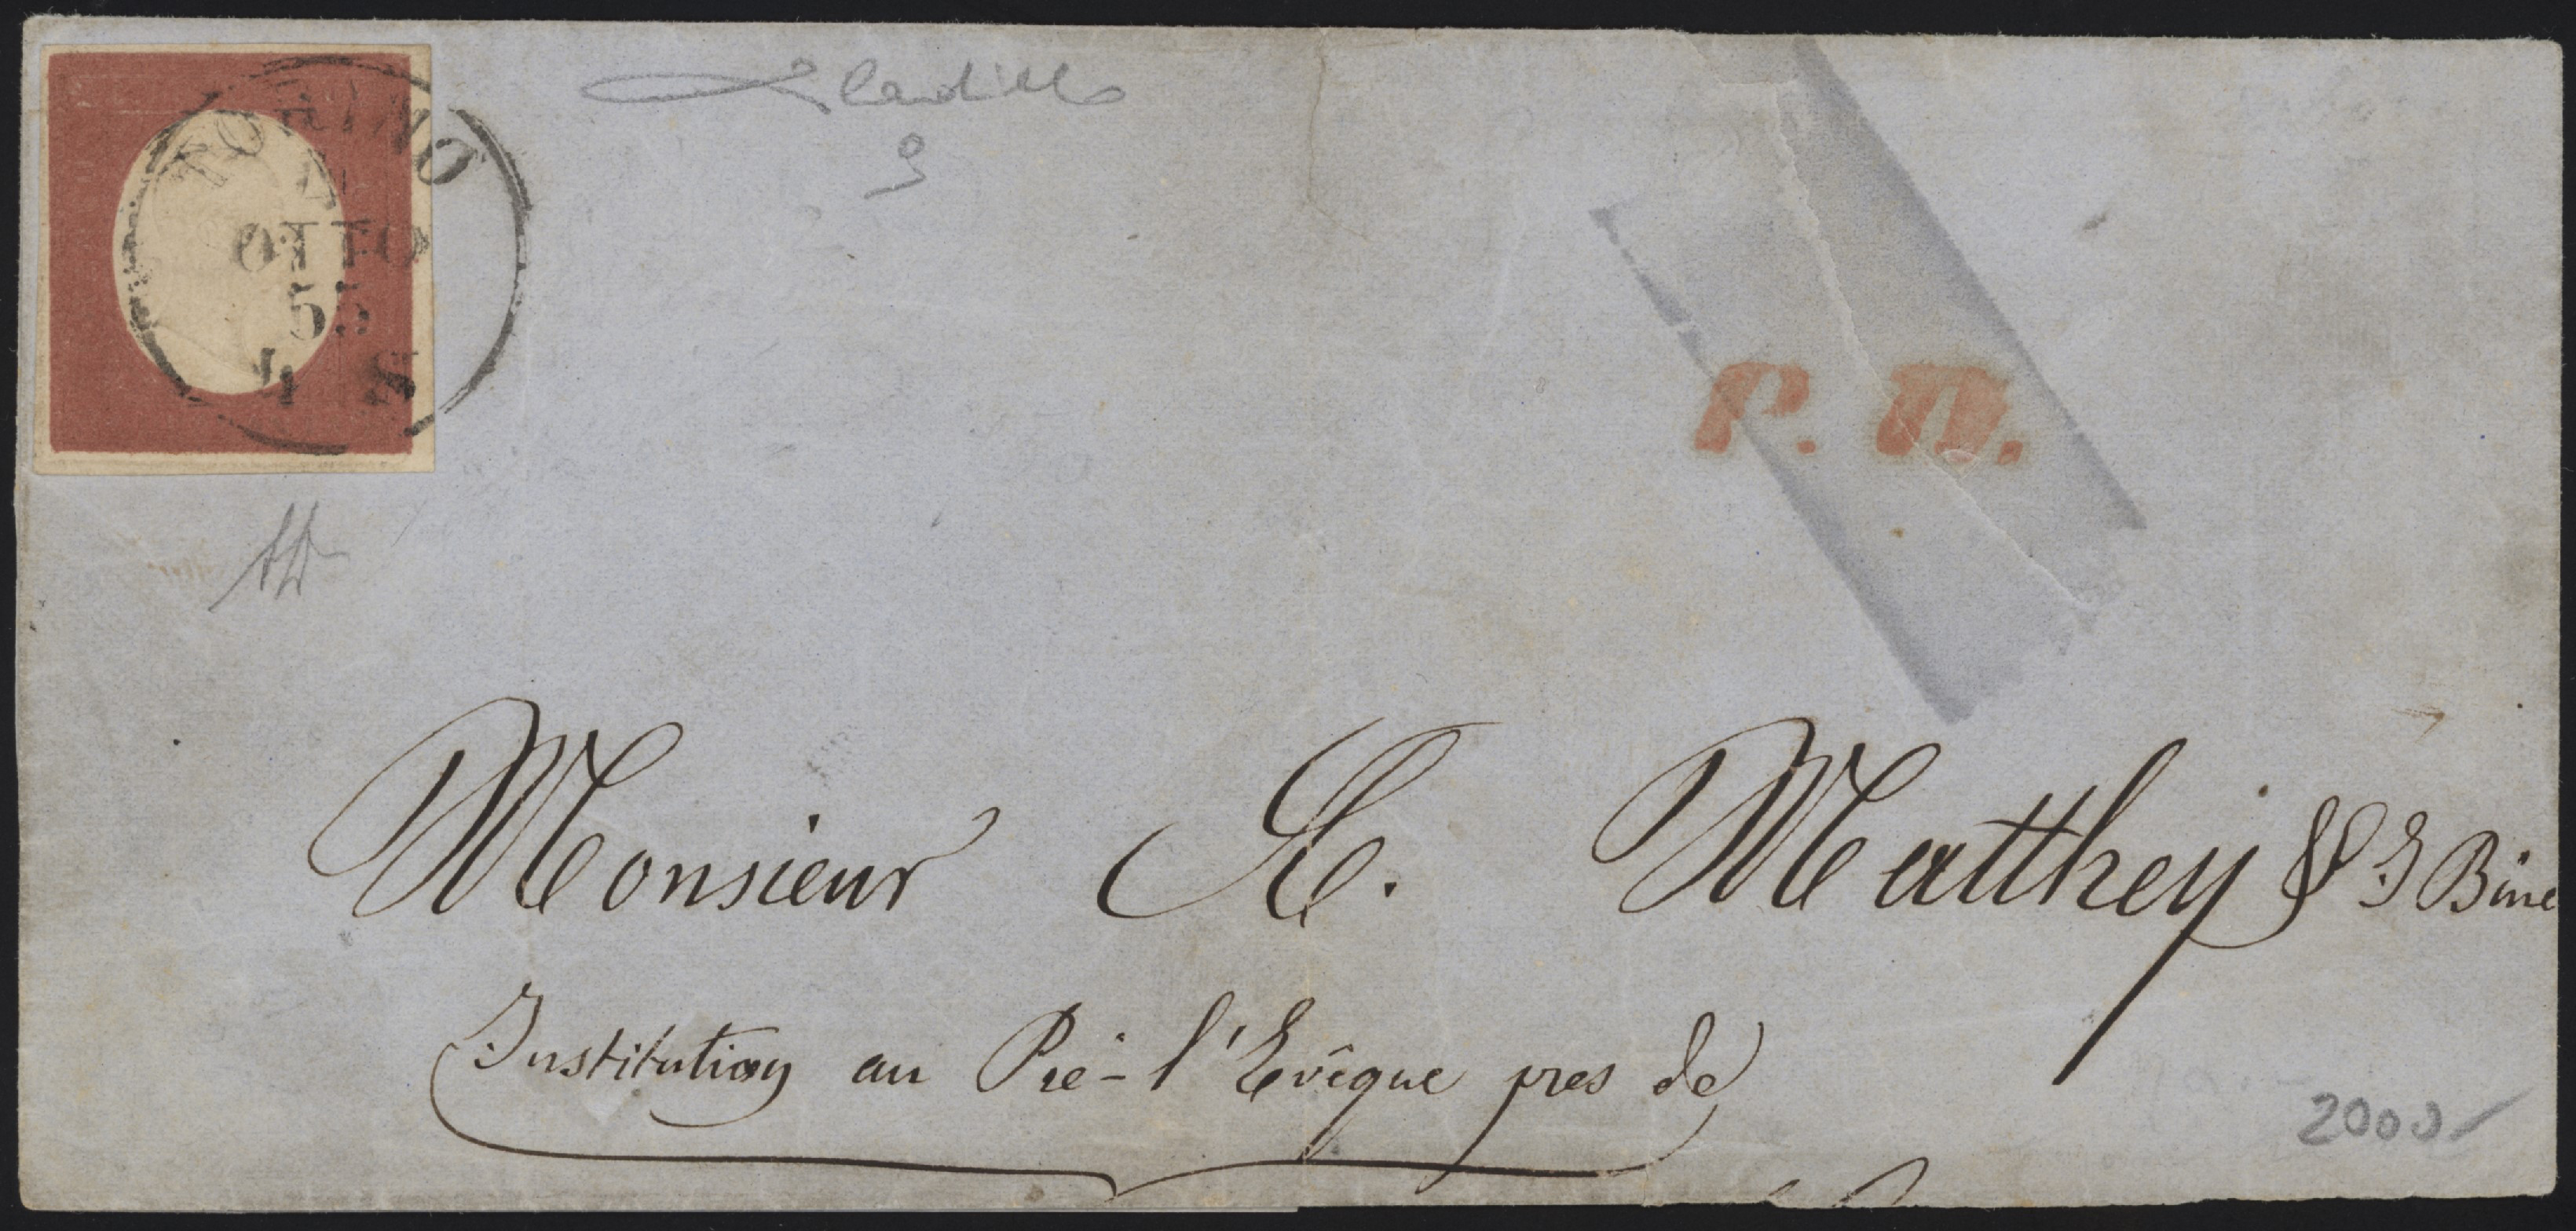 TORINO
OTTO
55
4 S
P. D.
Monsieur Matthey
Institution au Pré-l'Evêque pres de
2000